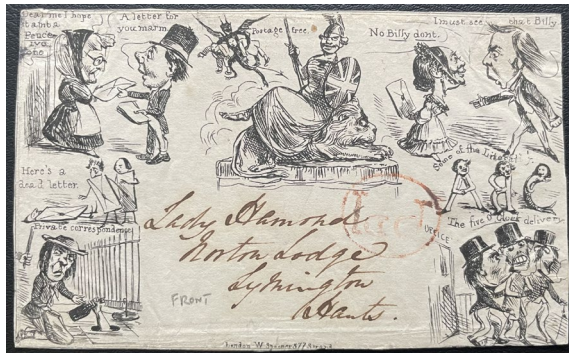 Dear me I hope
it aint a
Peuce
iva
one
A letter for
you marm
Postage free.
No Billy dont.
I must see that Billy
Here's a
dead letter.
Some of the
Private correspondence
The five o'clock delivery
OFFICE
Lady Hamond
Norton Lodge
Lymington
Hants.
FRONT
London W. Spooner 377 Strand